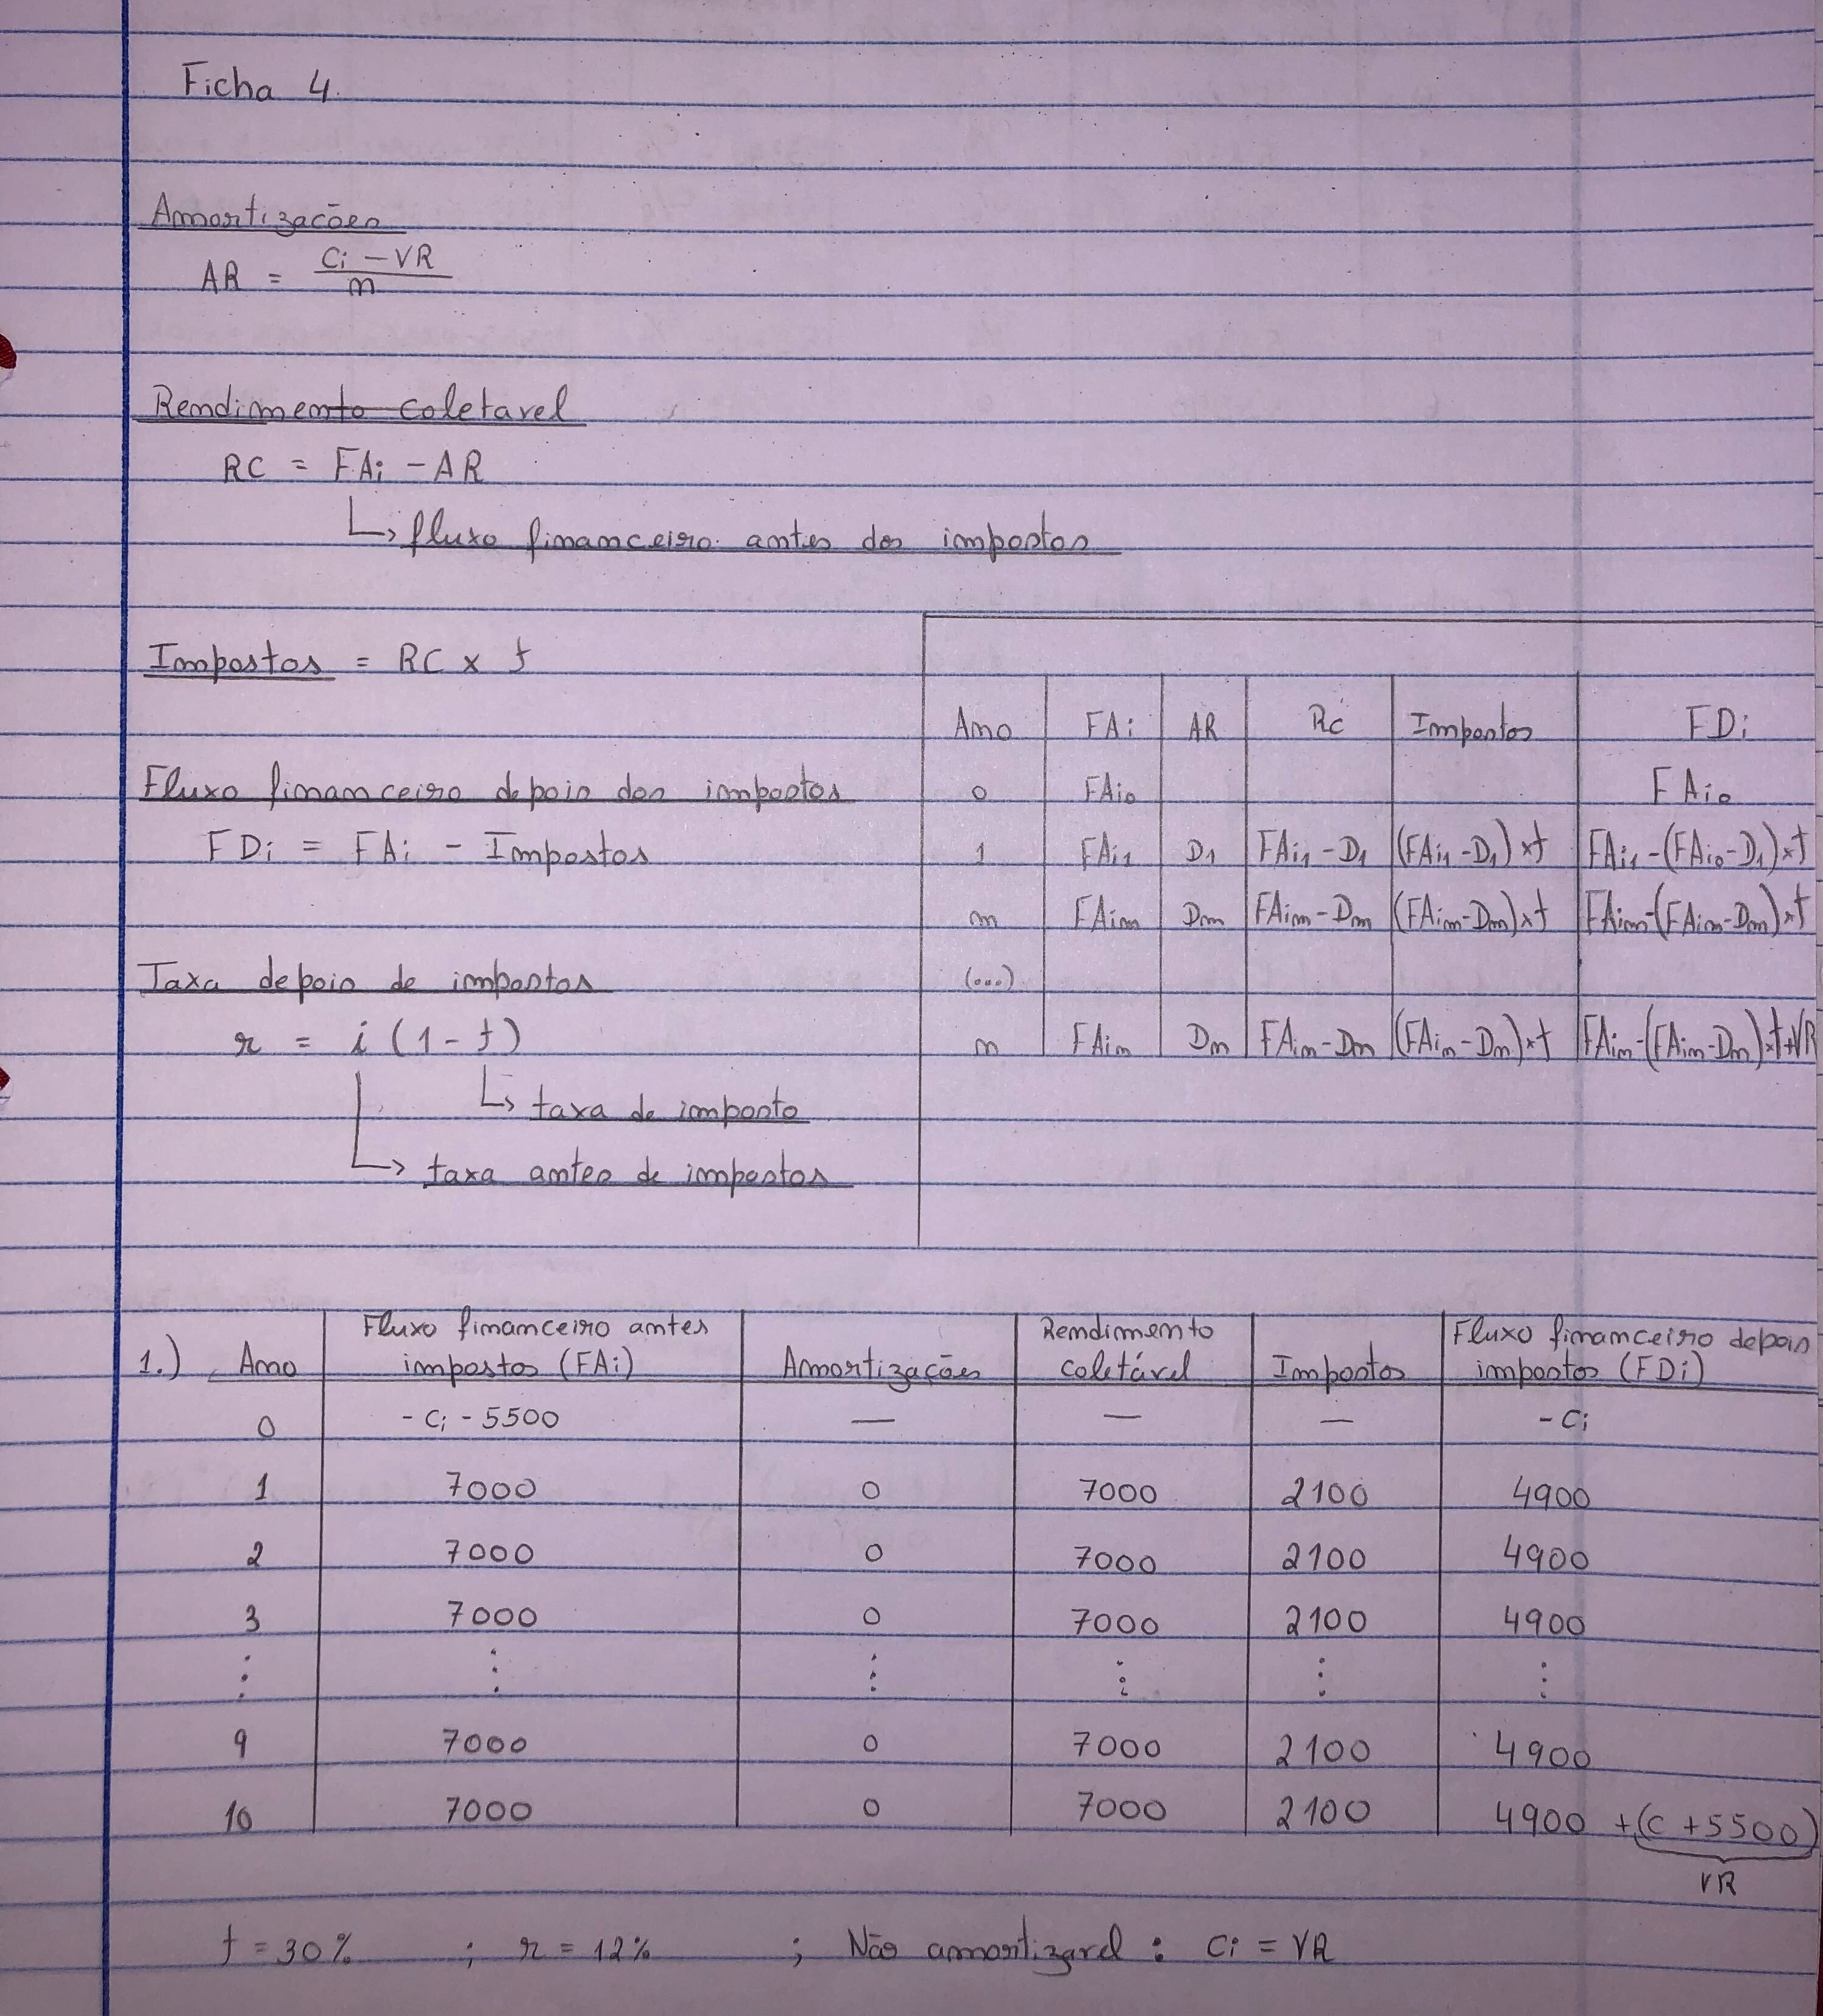 Ficha 4.
Amortizações
AR = Ci - VR / n
Rendimento coletavel
RC = FAi - AR
↳ fluxo financeiro antes dos impostos
Impostos = RC x t
Fluxo financeiro depois dos impostos
FDi = FAi - Impostos
Taxa depois de impostos
r = i (1 - t)
↳ taxa de imposto
↳ taxa antes de impostos
Ano FAi AR RC Impostos FDi
0 FAi0 FAi0
1 FAi1 D1 FAi1 - D1 (FAi1 - D1) x t FAi1 - (FAi0 - D1) x t
m FAim Dm FAim - Dm (FAim - Dm) x t FAim - (FAim - Dm) x t
(...)
n FAin Dn FAin - Dn (FAin - Dn) x t FAin - (FAin - Dn) x t + VR
1.) Ano Fluxo financeiro antes impostos (FAi) Amortizações Rendimento coletável Impostos Fluxo financeiro depois impostos (FDi)
0 - Ci - 5500 — — — - Ci
1 7000 0 7000 2100 4900
2 7000 0 7000 2100 4900
3 7000 0 7000 2100 4900
⋮ ⋮ ⋮ ⋮ ⋮ ⋮
9 7000 0 7000 2100 4900
10 7000 0 7000 2100 4900 + (C + 5500)
VR
t = 30% ; r = 12% ; Não amortizavel : Ci = VR